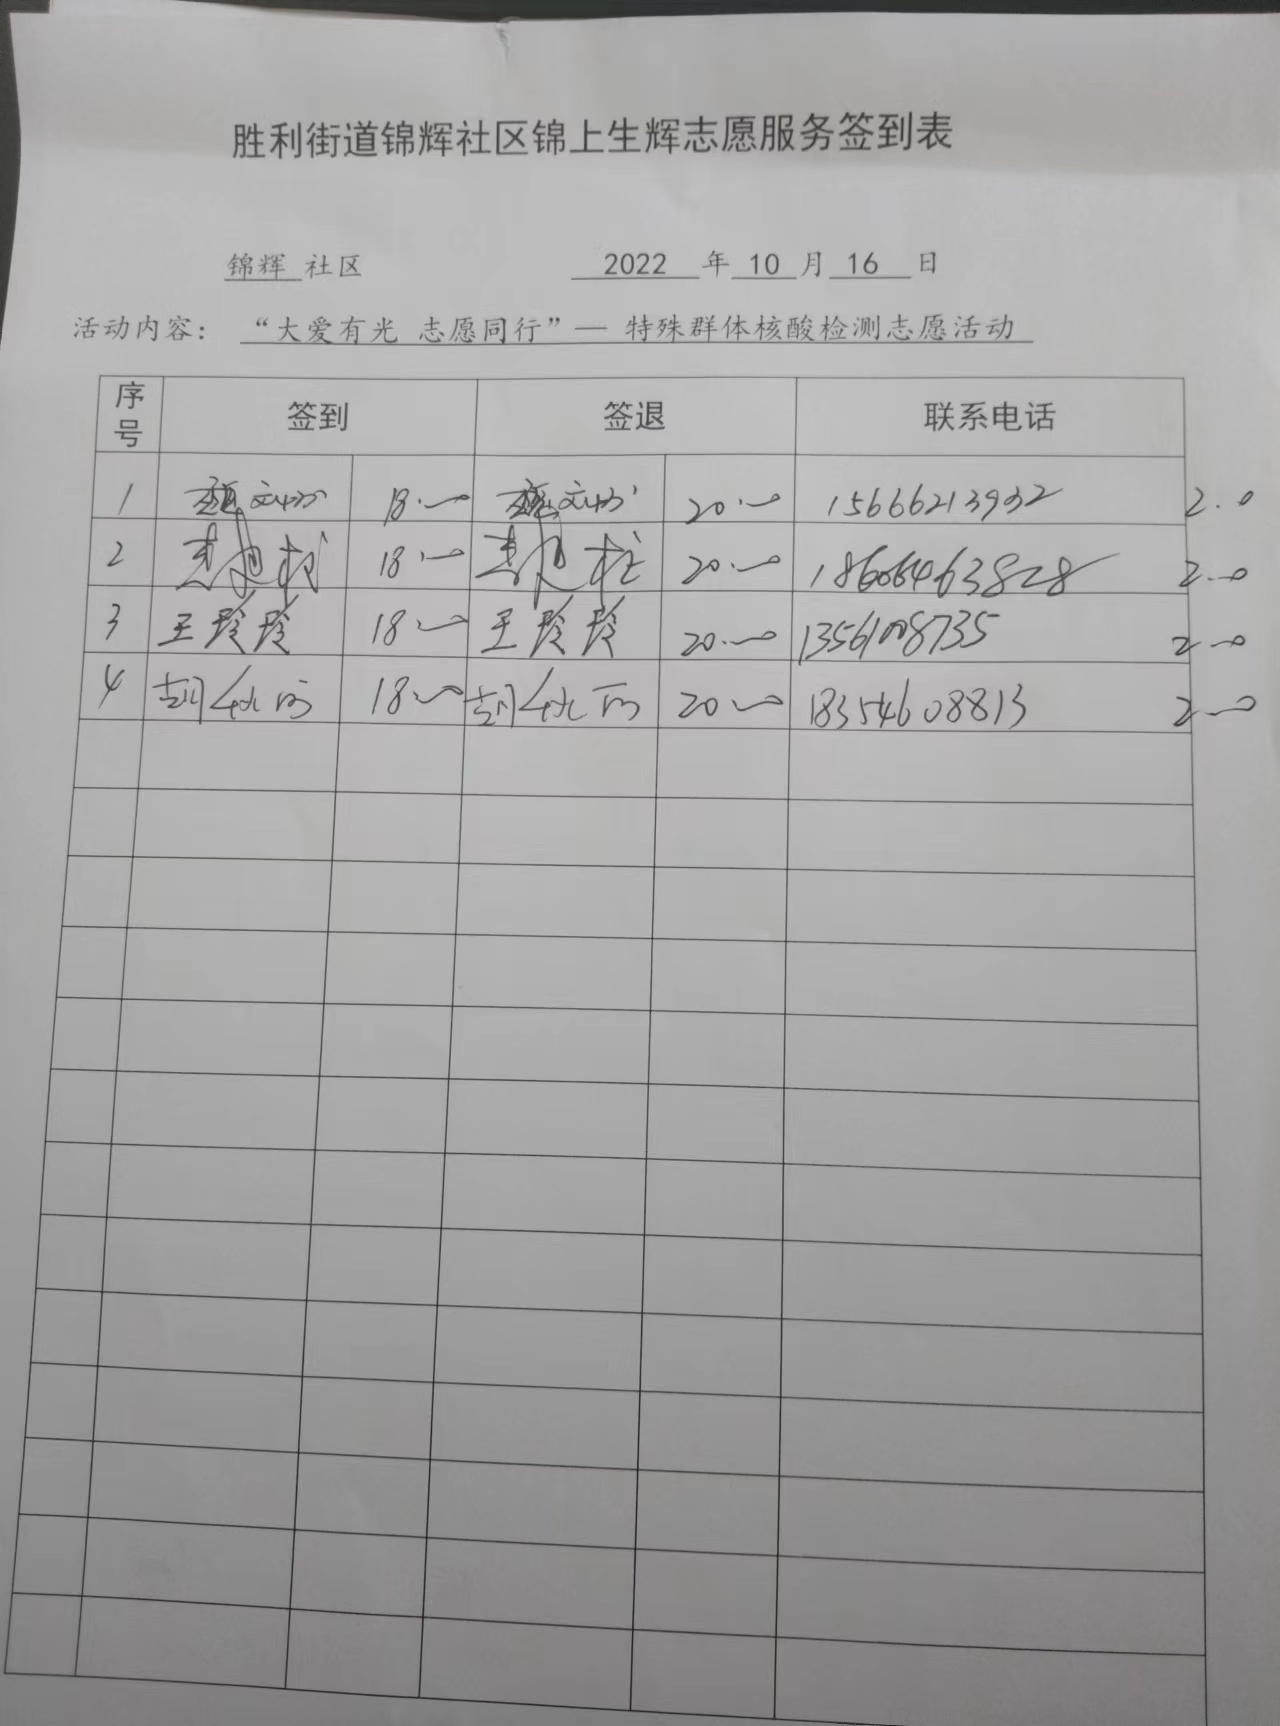 胜利街道锦辉社区锦上生辉志愿服务签到表
锦辉 社区 2022 年 10 月 16 日
活动内容： “大爱有光 志愿同行”— 特殊群体核酸检测志愿活动
序号 签到 签退 联系电话
1 18:00 20:00 15666213932 2.0
2 18:00 20:00 18606463828 2.0
3 王玲玲 18:00 王玲玲 20:00 13561008735 2.0
4 胡 18:00 胡 20:00 18354608813 2.0